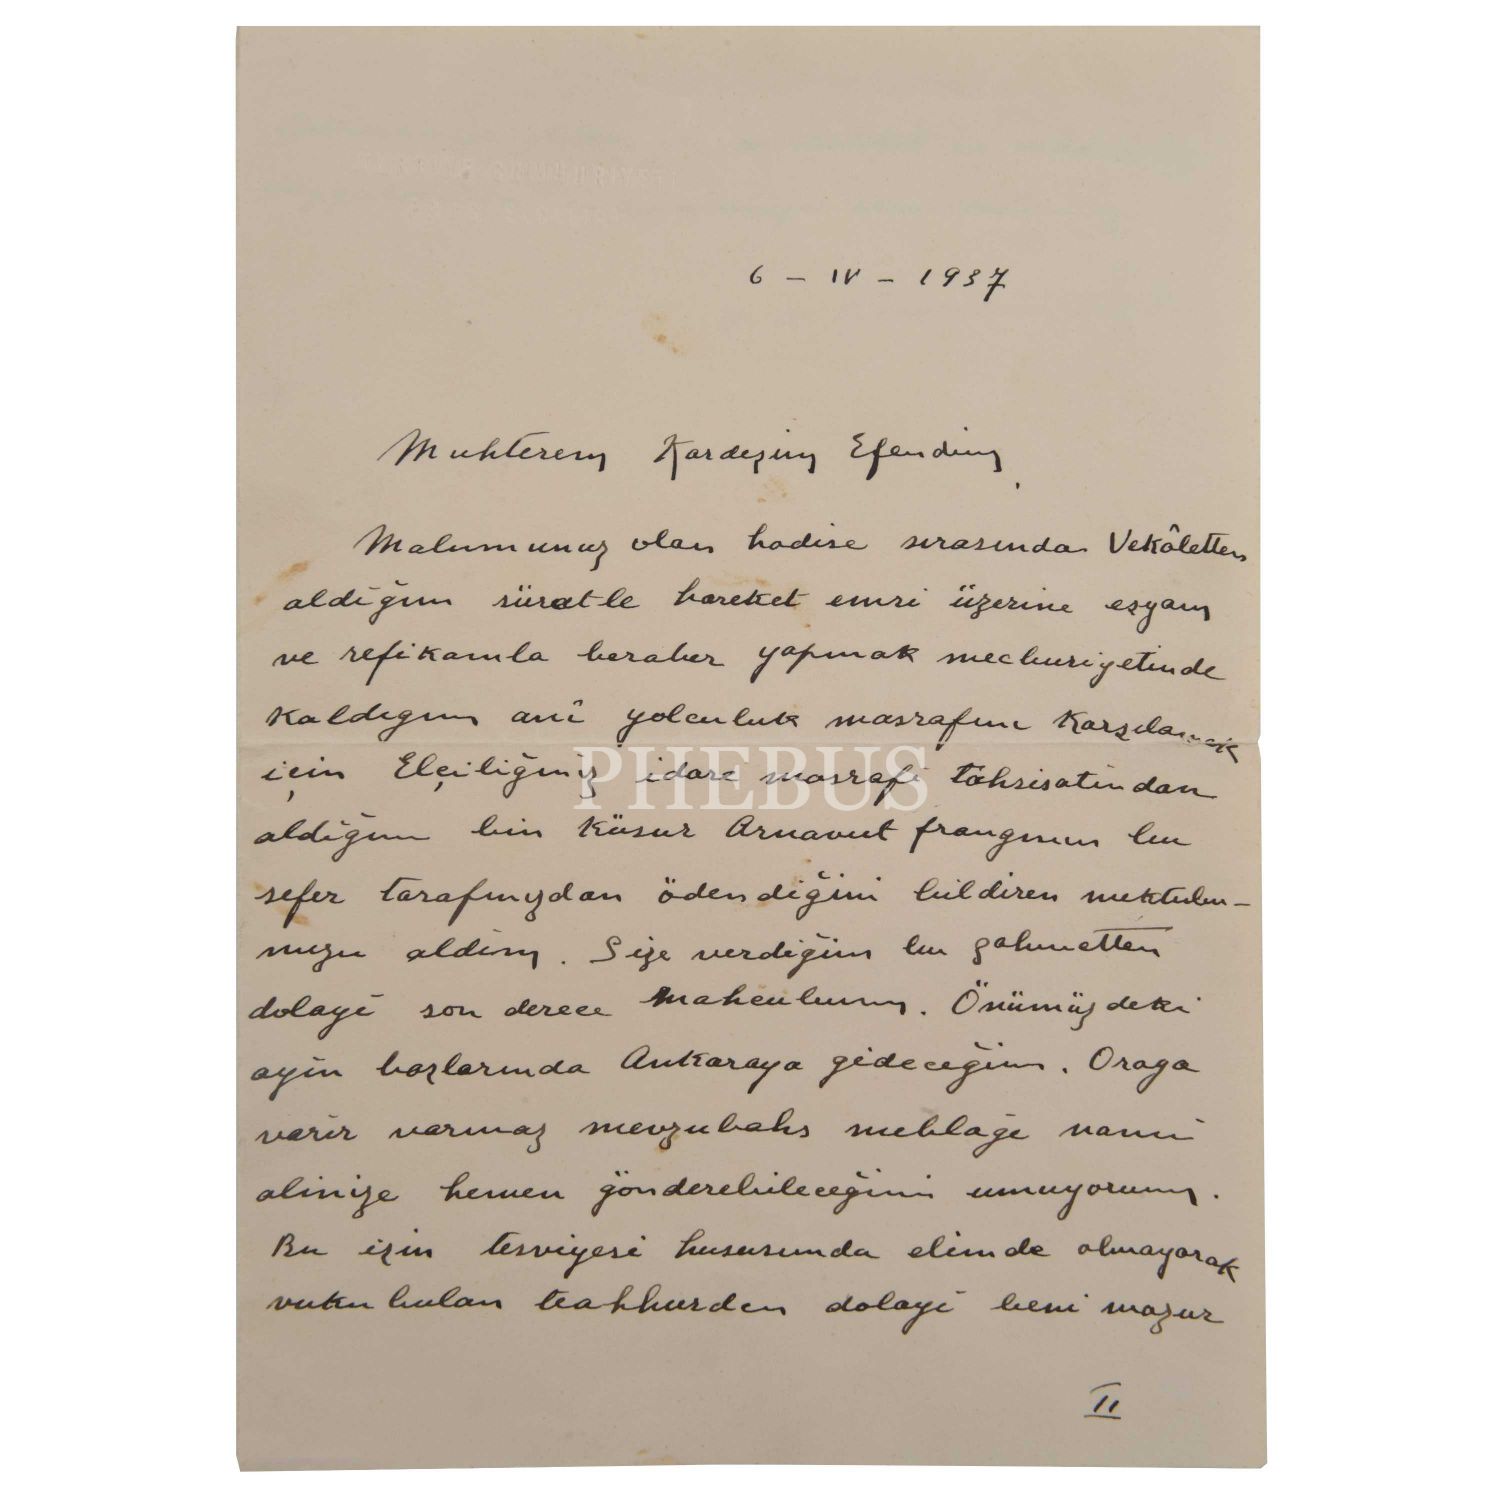 6 - IV - 1937
Muhterem Kardeşim Efendim,
Malumunuz olan hadise sırasında Vekâletten
aldığım sür'atle hareket emri üzerine eşyam
ve refikamla beraber yapmak mecburiyetinde
kaldığım anî yolculuk masrafını karşılamak
için Elçiliğimiz idare masrafi tahsisatından
aldığım bin küsur Arnavut frangının bu
sefer tarafınızdan ödendiğini bildiren mektubu-
nuzu aldım. Size verdiğim bu zahmetten
dolayi son derece mahcubum. Önümüzdeki
ayin başlarında Ankaraya gideceğim. Oraya
varir varmaz mevzubahs meblaği nami
alinize hemen gönderebileceğimi umuyorum.
Bu işin tesviyesi hususunda elimde olmayarak
vuku bulan teahhurden dolayi beni mazur
II
PHEBUS